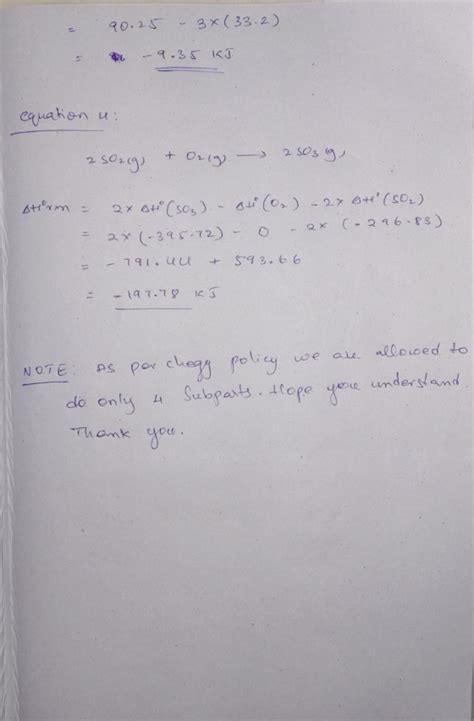 = 90.25 - 3×(33.2)
= -9.35 KJ
equation 4:
2SO2(g) + O2(g) → 2SO3(g)
ΔH°rxn = 2× ΔH°(SO3) - ΔH°(O2) - 2× ΔH°(SO2)
= 2× (-395.72) - 0 - 2× (-296.83)
= -791.44 + 593.66
= -197.78 KJ
NOTE: As per chegg policy we are allowed to
do only 4 Subparts. Hope you understand.
Thank you.